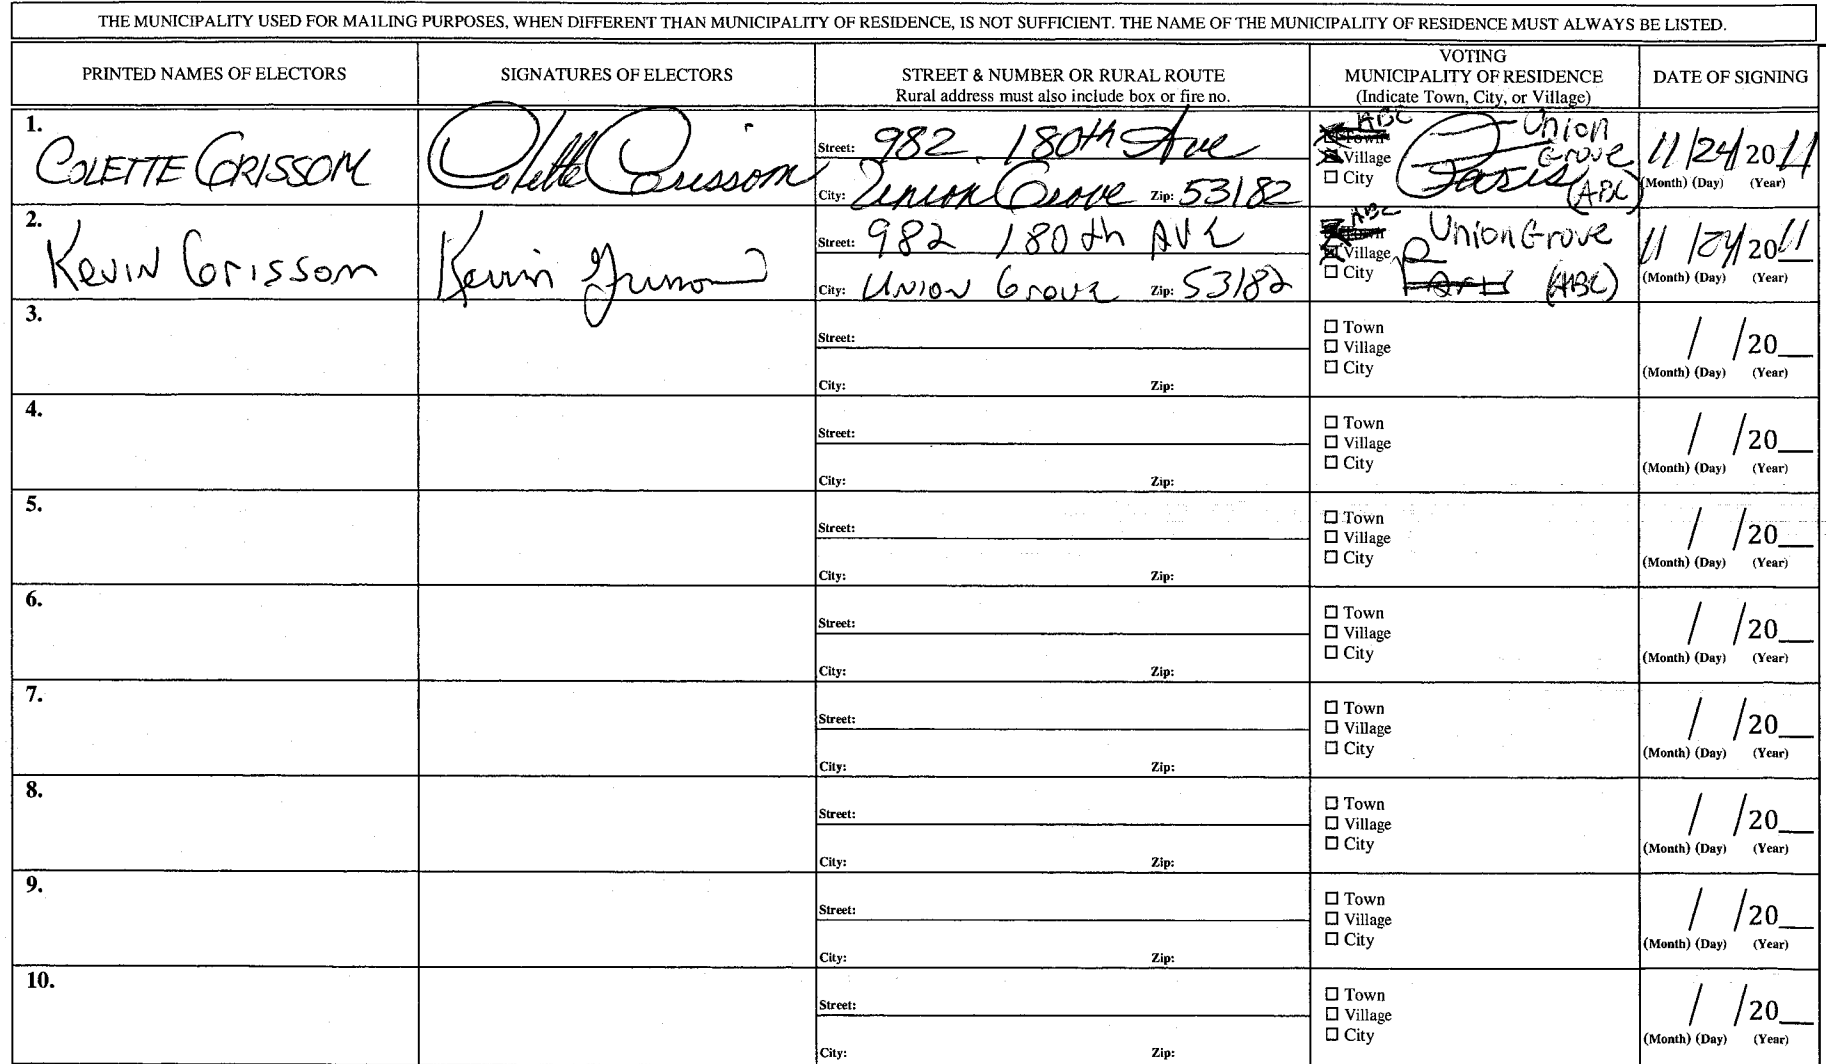 THE MUNICIPALITY USED FOR MAILING PURPOSES, WHEN DIFFERENT THAN MUNICIPALITY OF RESIDENCE, IS NOT SUFFICIENT. THE NAME OF THE MUNICIPALITY OF RESIDENCE MUST ALWAYS BE LISTED.
PRINTED NAMES OF ELECTORS
SIGNATURES OF ELECTORS
STREET & NUMBER OR RURAL ROUTE
Rural address must also include box or fire no.
VOTING
MUNICIPALITY OF RESIDENCE
(Indicate Town, City, or Village)
DATE OF SIGNING
1.
COLETTE GRISSOM
Colette Grissom
Street: 982 180th Ave
City: Union Grove Zip: 53182
ABC
Town
Village
City
Union
Grove
Paris (ABC)
11/24/2011
(Month) (Day) (Year)
2.
Kevin Grissom
Kevin Grissom
Street: 982 180th AVE
City: Union Grove Zip: 53182
ABC
Town
Village
City
Union Grove
Paris (ABC)
11/24/2011
(Month) (Day) (Year)
3.
Street:
City: Zip:
Town
Village
City
/ /20__
(Month) (Day) (Year)
4.
Street:
City: Zip:
Town
Village
City
/ /20__
(Month) (Day) (Year)
5.
Street:
City: Zip:
Town
Village
City
/ /20__
(Month) (Day) (Year)
6.
Street:
City: Zip:
Town
Village
City
/ /20__
(Month) (Day) (Year)
7.
Street:
City: Zip:
Town
Village
City
/ /20__
(Month) (Day) (Year)
8.
Street:
City: Zip:
Town
Village
City
/ /20__
(Month) (Day) (Year)
9.
Street:
City: Zip:
Town
Village
City
/ /20__
(Month) (Day) (Year)
10.
Street:
City: Zip:
Town
Village
City
/ /20__
(Month) (Day) (Year)